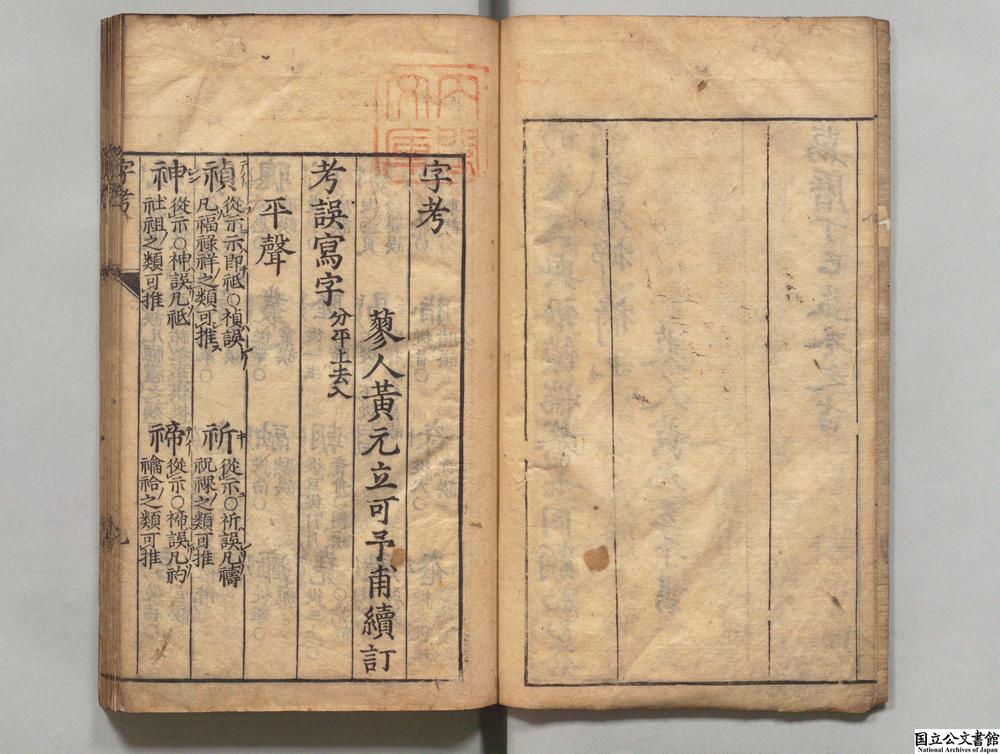 内閣文庫
字考
蓼人黃元立可予甫續訂
考誤寫字分平上去入
平聲
禎從示示即祗○禎誤
凡福祿祥之類可推
祈從示○祈誤凡禱
祝祼之類可推
神從示○神誤凡祗
社祖之類可推
禘從示○褅誤凡礿
禴祫之類可推
字考
国立公文書館
National Archives of Japan